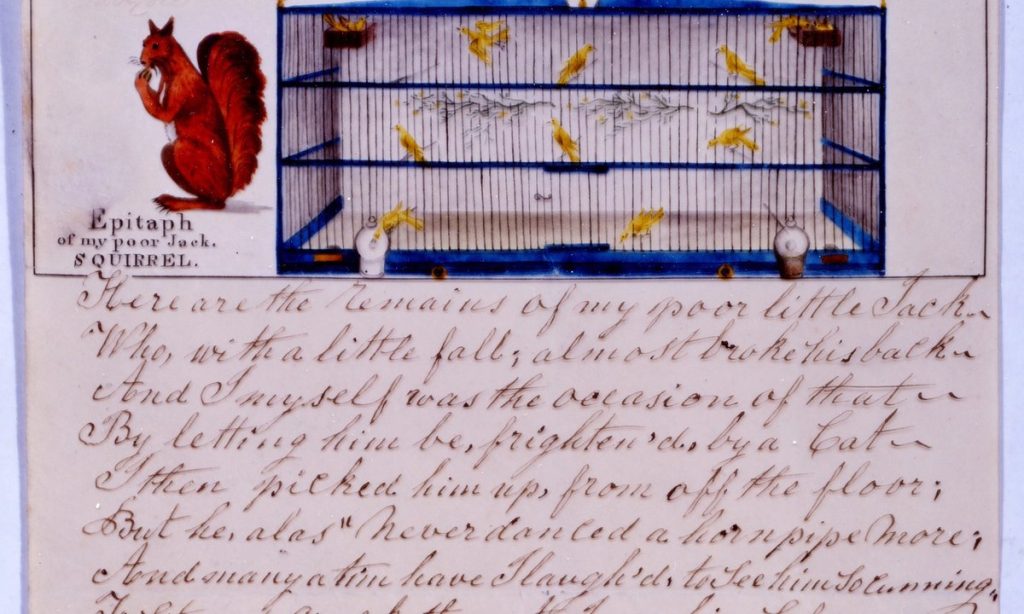 Epitaph
of my poor Jack.
SQUIRREL.
Here are the remains of my poor little Jack
Who, with a little fall; almost broke his back
And I myself was the occasion of that
By letting him be, frighten'd, by a Cat
I then picked him up, from off the floor;
But he, alas" Never danced a hornpipe More;
And many a tim have I laugh'd, to See him So Cunning"